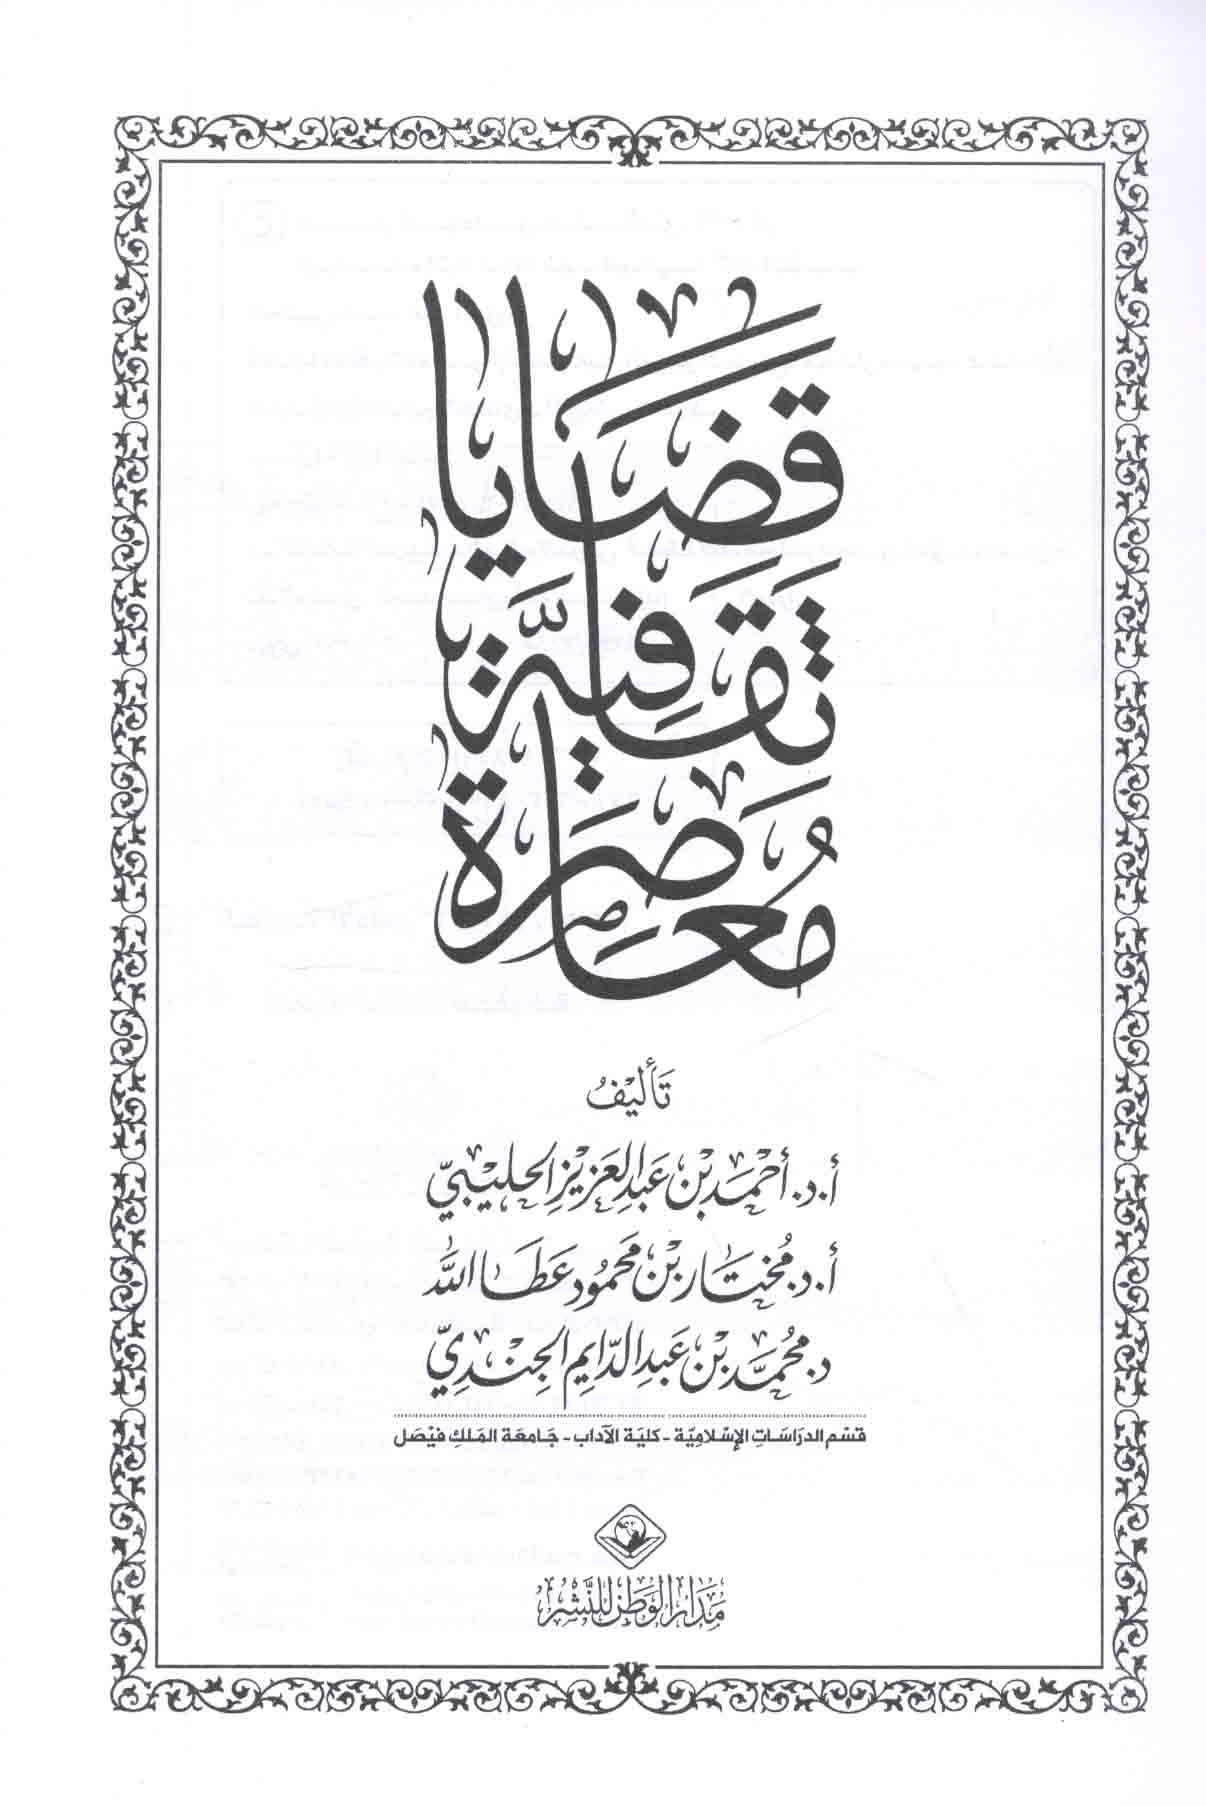 قضايا
ثقافية
معاصرة
تأليف
أ.د. أحمد بن عبد العزيز الحليبي
أ.د. مختار بن محمود عطا الله
د. محمد بن عبد الدايم الجندي
قسم الدراسات الإسلامية - كلية الآداب - جامعة الملك فيصل
مدار الوطن للنشر